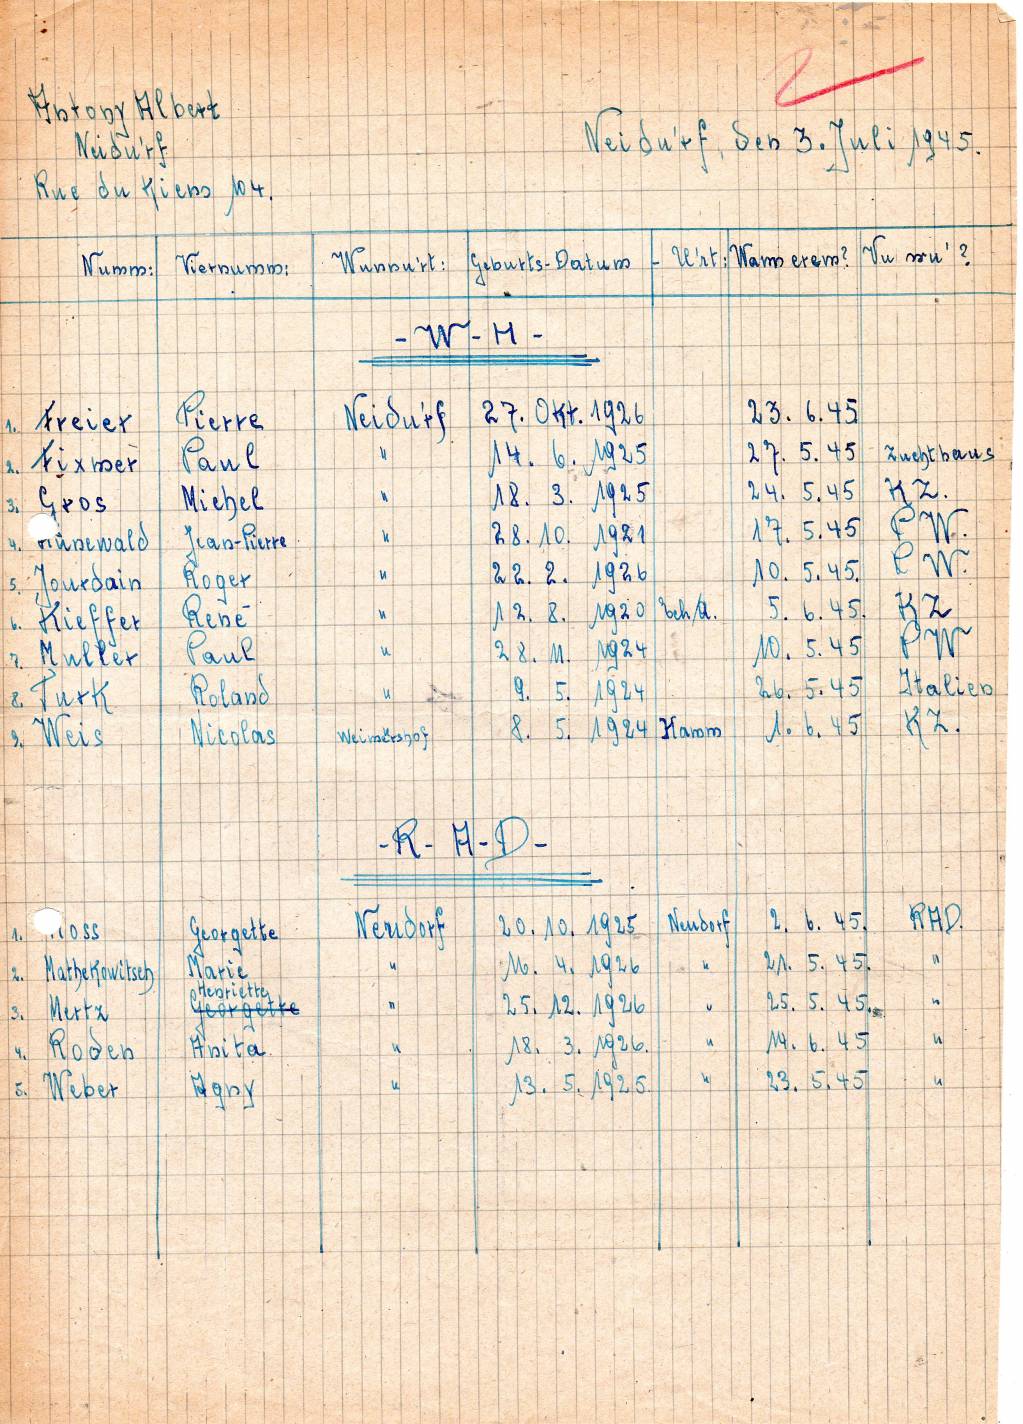 Antony Albert
Neidu'rf
Rue du Kiem 104.
Neidu'rf, den 3. Juli 1945.
Numm: Viernumm: Wunnu'rt: Geburts-Datum - U'rt: Wann erem? Vu wu'?
- W - H -
1. Freier Pierre Neidu'rf 27. Okt. 1926 23. 6. 45
2. Fixmer Paul " 14. 6. 1925 27. 5. 45 Zuchthaus
3. Gros Michel " 18. 3. 1925 24. 5. 45 KZ.
4. Jean-Pierre " 28. 10. 1921 17. 5. 45 PW.
5. Jourdain Roger " 22. 2. 1926 10. 5. 45. PW.
6. Kieffer René " 12. 8. 1920 5. 6. 45. KZ
7. Muller Paul " 28. 11. 1924 10. 5. 45 PW
8. Turk Roland " 9. 5. 1924 26. 5. 45 Italien
9. Weis Nicolas Weimershof 8. 5. 1924 Hamm 1. 6. 45 KZ.
- R - A - D -
1. Georgette Neudorf 20. 10. 1925 Neudorf 2. 6. 45. RAD.
2. Mathekowitsch Marie " 16. 4. 1926 " 21. 5. 45. "
Henriette
3. Mertz Georgette " 25. 12. 1926 " 25. 5. 45. "
4. Roden Anita " 18. 3. 1926. " 14. 6. 45 "
5. Weber Agny " 13. 5. 1925. " 23. 5. 45 "